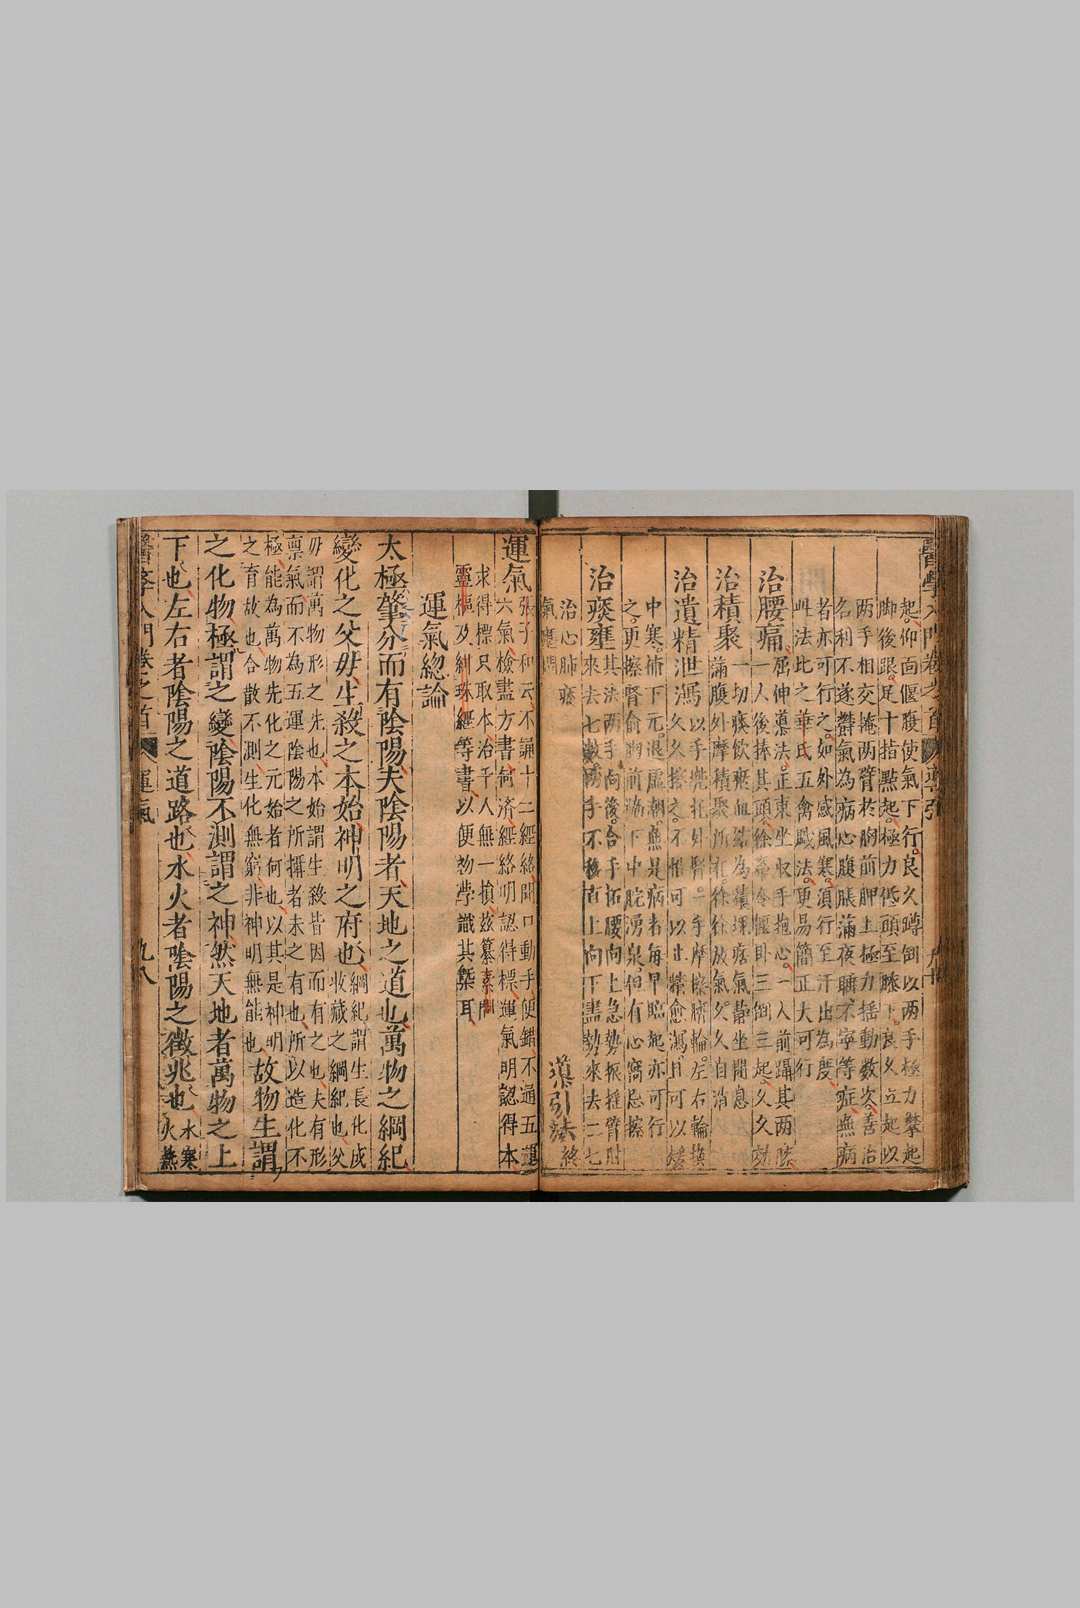 醫學入門卷之首 導引
起仰面偃腹使氣下行良久蹲倒以两手極力攀起
脚後跟足十指點起極力低頭至膝下良久立起以
两手相交掩两臂於胸前胛上極力揺動數次善治
名利不遂鬱氣為病心腹膨滿夜睡不寧等症無病
者亦可行之如外感風寒須行至汗出為度
此法比之華氏五禽戲法更易簡正大可行
治腰痛 屈伸導法正東坐收手抱心一人前躡其两膝
一人後捧其頭徐牽令偃卧三倒三起久久効
治積聚 一切痰飲瘀血結為積塊痞氣靠坐閉息
滿腹外摩積聚所徐徐放氣久久自消
治遺精泄瀉 以手兜托外腎一手摩擦臍輪左右輪換
久久擦之不惟可以止精愈瀉且可以矯
中寒補下元退虛潮熱是病者每早臨起亦可行
之更擦腎俞胸前脇下中脘湧泉但有心窩忌擦
治痰壅 其法两手向後合手拓腰向上急勢振揺臂肘
來去七數
手不移直上向下盡勢來去二七
治心肺痰
氣壅悶
導引法終
運氣 張子和云不誦十二經絡開口動手便錯不通五運
六氣檢盡方書何济經絡明認得標運氣明認得本
求得標只取本治千人無一損茲纂素問
靈樞及
珠經等書以便初學識其槩耳
運氣總論
太極肇分而有陰陽夫陰陽者天地之道也萬物之綱紀
變化之父毋生殺之本始神明之府也 綱紀謂生長化成
收藏之綱紀也父
毋謂萬物形之先也本始謂生殺皆因而有之也夫有形
禀氣而不為五運陰陽之所攝者未之有也所以造化不
極能為萬物先化之元始者何也以其是神明
之育故也合散不測生化無窮非神明無能也 故物生謂
之化物極謂之變陰陽不測謂之神然天地者萬物之上
下也左右者陰陽之道路也水火者陰陽之徵兆也 水寒
火熱
醫學入門卷之首 運氣 九八